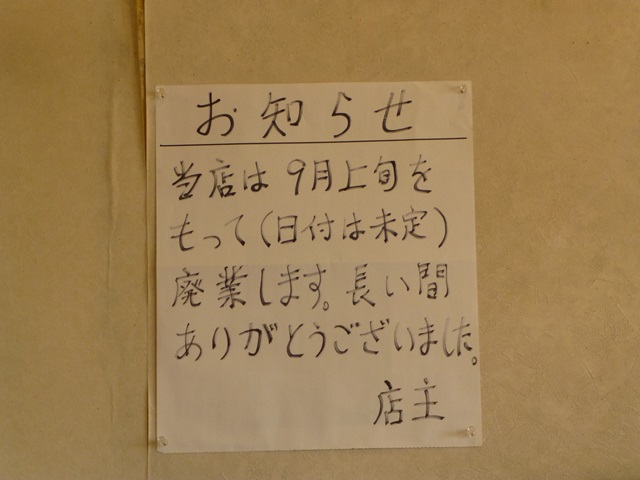 お知らせ
当店は9月上旬を
もって(日付は未定)
廃業します。長い間
ありがとうございました。
店主